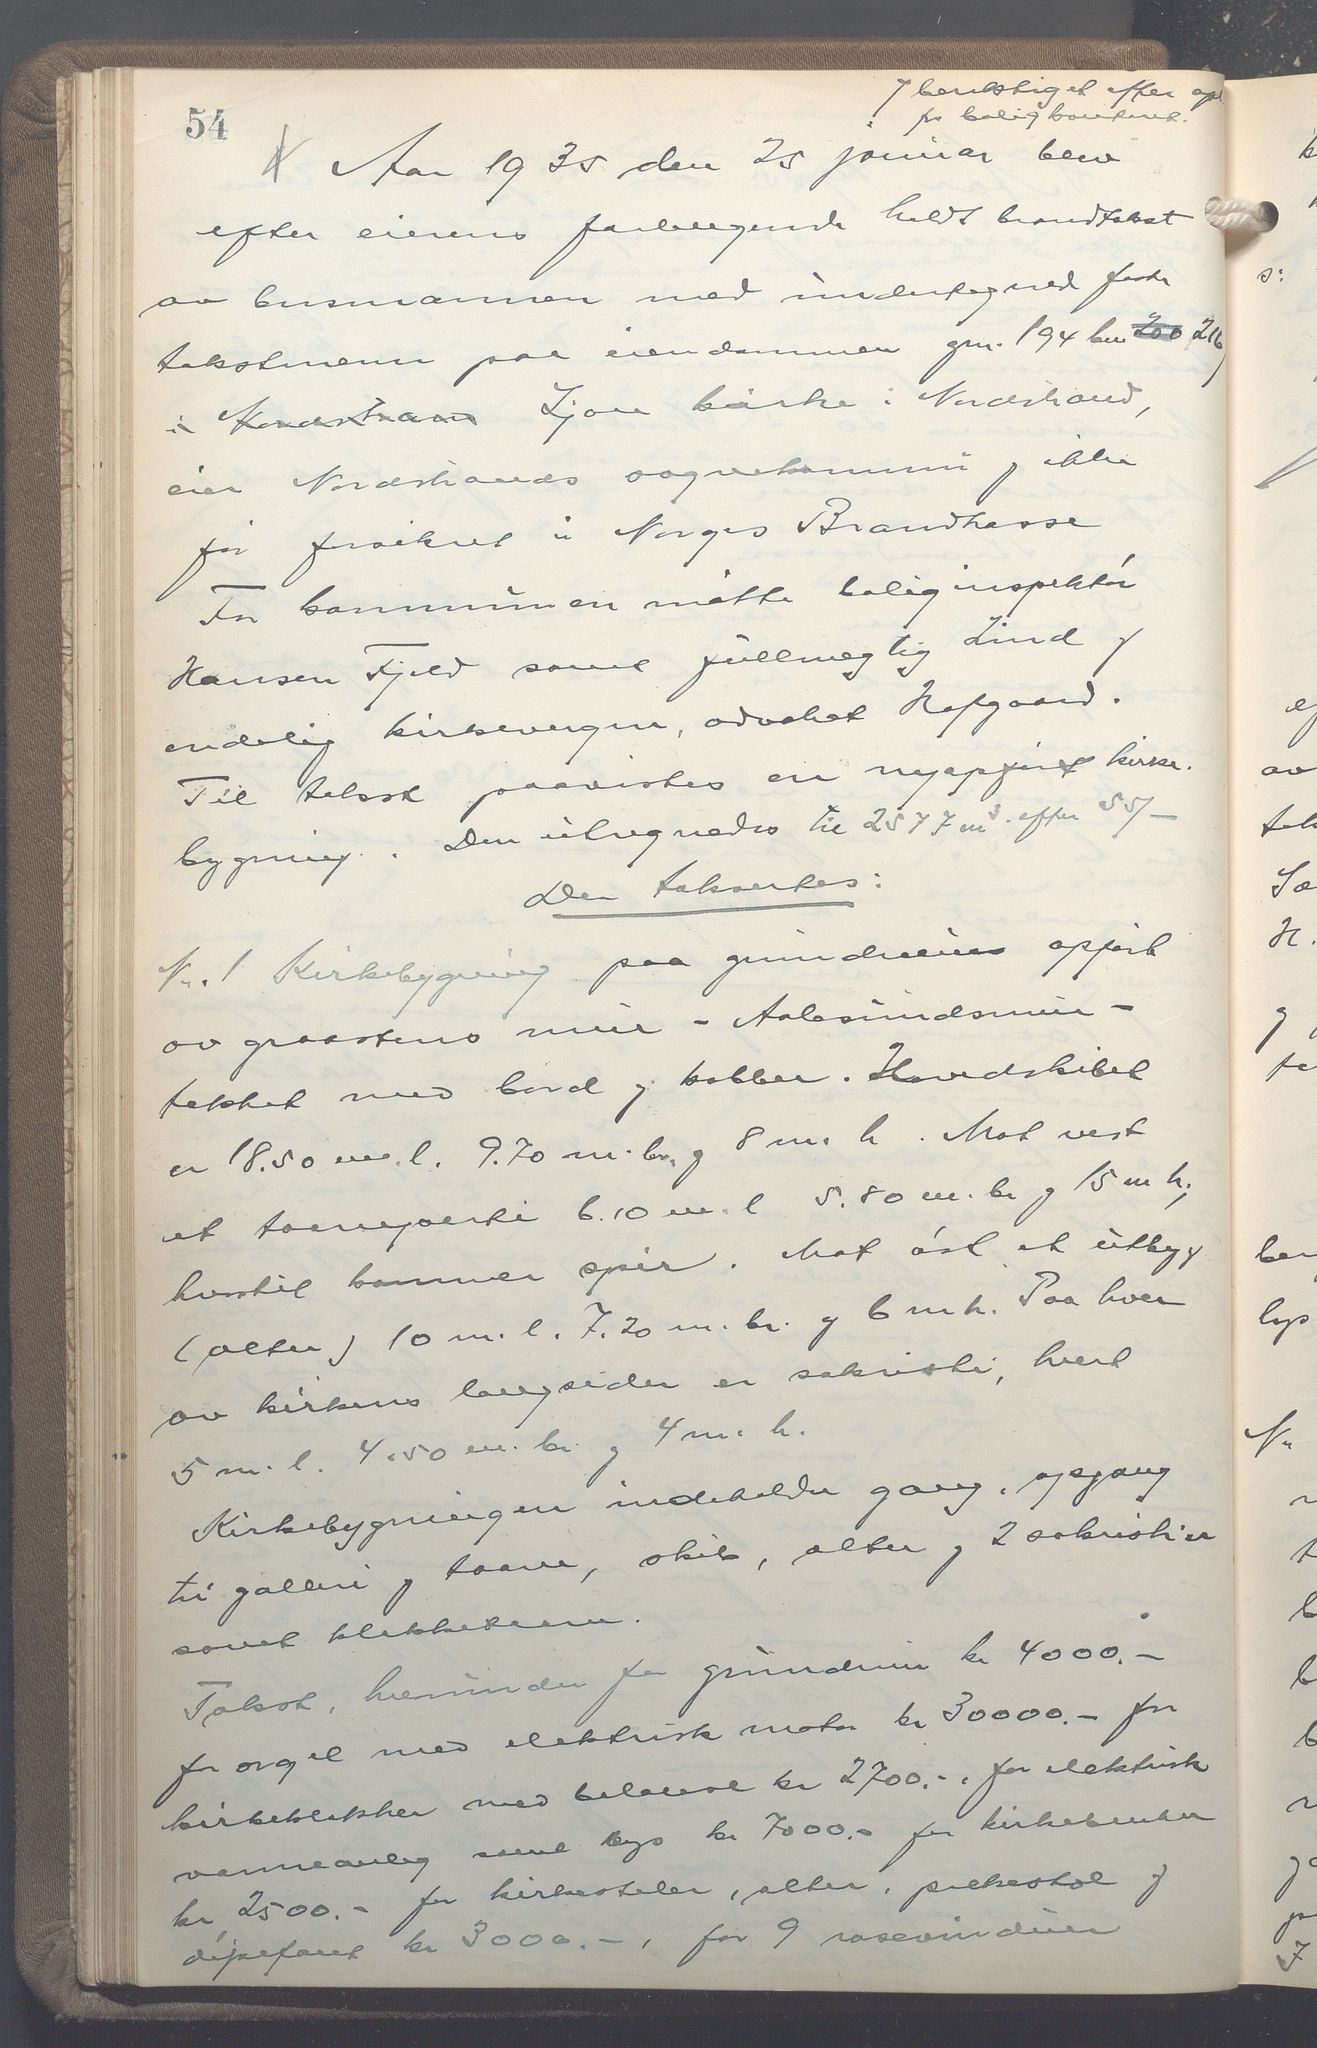 54
berettiget efter
fra boligkontoret.
Aar 1935 den 25 januar blev
efter eierens forlangende holdt brandtakst
av lensmannen med undertegned faste
takstmenn paa eiendommen gnr. 194 bnr 200 216
i Nordstrand Ljan kirke i Nordstrand,
eier Nordstrands sognekommune og ikke
før forsikret i Norges Brandkasse
For kommunen møtte boliginspektør
Hansen Fjeld samt fullmegtig Lind og
endelig kirkevergen, advokat Hofgaard.
Til takst paavistes en nyopført kirke-
bygning. Den utregnedes til 2577 m³ efter 55/-
Der takseres:
Nr. 1 Kirkebygning paa grundmur opført
av graastens mur - Aalesundsmur -
tekket med bord og kobber. Hovedskibet
er 18.50 m. l. 9.70 m. br. og 8 m. h. Mot vest
et taarnparti 6.10 m. l 5.80 m. br og 15 m h,
hvortil kommer spir. Mot øst et utbygg
(alter) 10 m. l. 7.20 m. br. og 6 m h. Paa hver
av kirkens langsider er sakristi, hvert
5 m. l. 4.50 m. br. og 4 m. h.
Kirkebygningen indeholder gang, opgang
til galleri og taarn, skib, alter og 2 sakristier
samt klokketaarn.
Takst, herunder for grundmur kr 4000.-
for orgel med elektrisk motor kr 30000.- for
kirkeklokker med belaate kr 2700.-, for elektrisk
varmeanleg samt lys kr 7000.- for kirkebenker
kr 2500.- for kirkestoler, alter, prekestol og
døpefont kr 3000.-, for 9 rosevinduer